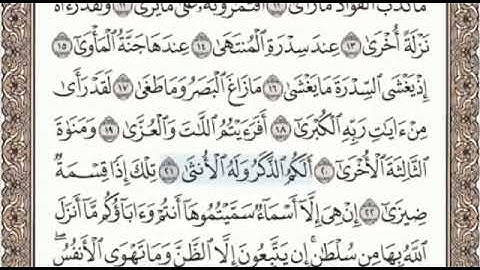 مَا كَذَبَ ٱلْفُؤَادُ مَا رَأَىٰٓ ١١ أَفَتُمَـٰرُونَهُۥ عَلَىٰ مَا يَرَىٰ ١٢ وَلَقَدْ رَءَاهُ
نَزْلَةً أُخْرَىٰ ١٣ عِندَ سِدْرَةِ ٱلْمُنتَهَىٰ ١٤ عِندَهَا جَنَّةُ ٱلْمَأْوَىٰٓ ١٥
إِذْ يَغْشَى ٱلسِّدْرَةَ مَا يَغْشَىٰ ١٦ مَا زَاغَ ٱلْبَصَرُ وَمَا طَغَىٰ ١٧ لَقَدْ رَأَىٰ
مِنْ ءَايَـٰتِ رَبِّهِ ٱلْكُبْرَىٰٓ ١٨ أَفَرَءَيْتُمُ ٱللَّـٰتَ وَٱلْعُزَّىٰ ١٩ وَمَنَوٰةَ
ٱلثَّالِثَةَ ٱلْأُخْرَىٰٓ ٢٠ أَلَكُمُ ٱلذَّكَرُ وَلَهُ ٱلْأُنثَىٰ ٢١ تِلْكَ إِذًا قِسْمَةٌ
ضِيزَىٰٓ ٢٢ إِنْ هِىَ إِلَّآ أَسْمَآءٌ سَمَّيْتُمُوهَآ أَنتُمْ وَءَابَآؤُكُم مَّآ أَنزَلَ
ٱللَّهُ بِهَا مِن سُلْطَـٰنٍ ۚ إِن يَتَّبِعُونَ إِلَّا ٱلظَّنَّ وَمَا تَهْوَى ٱلْأَنفُسُ ۖ